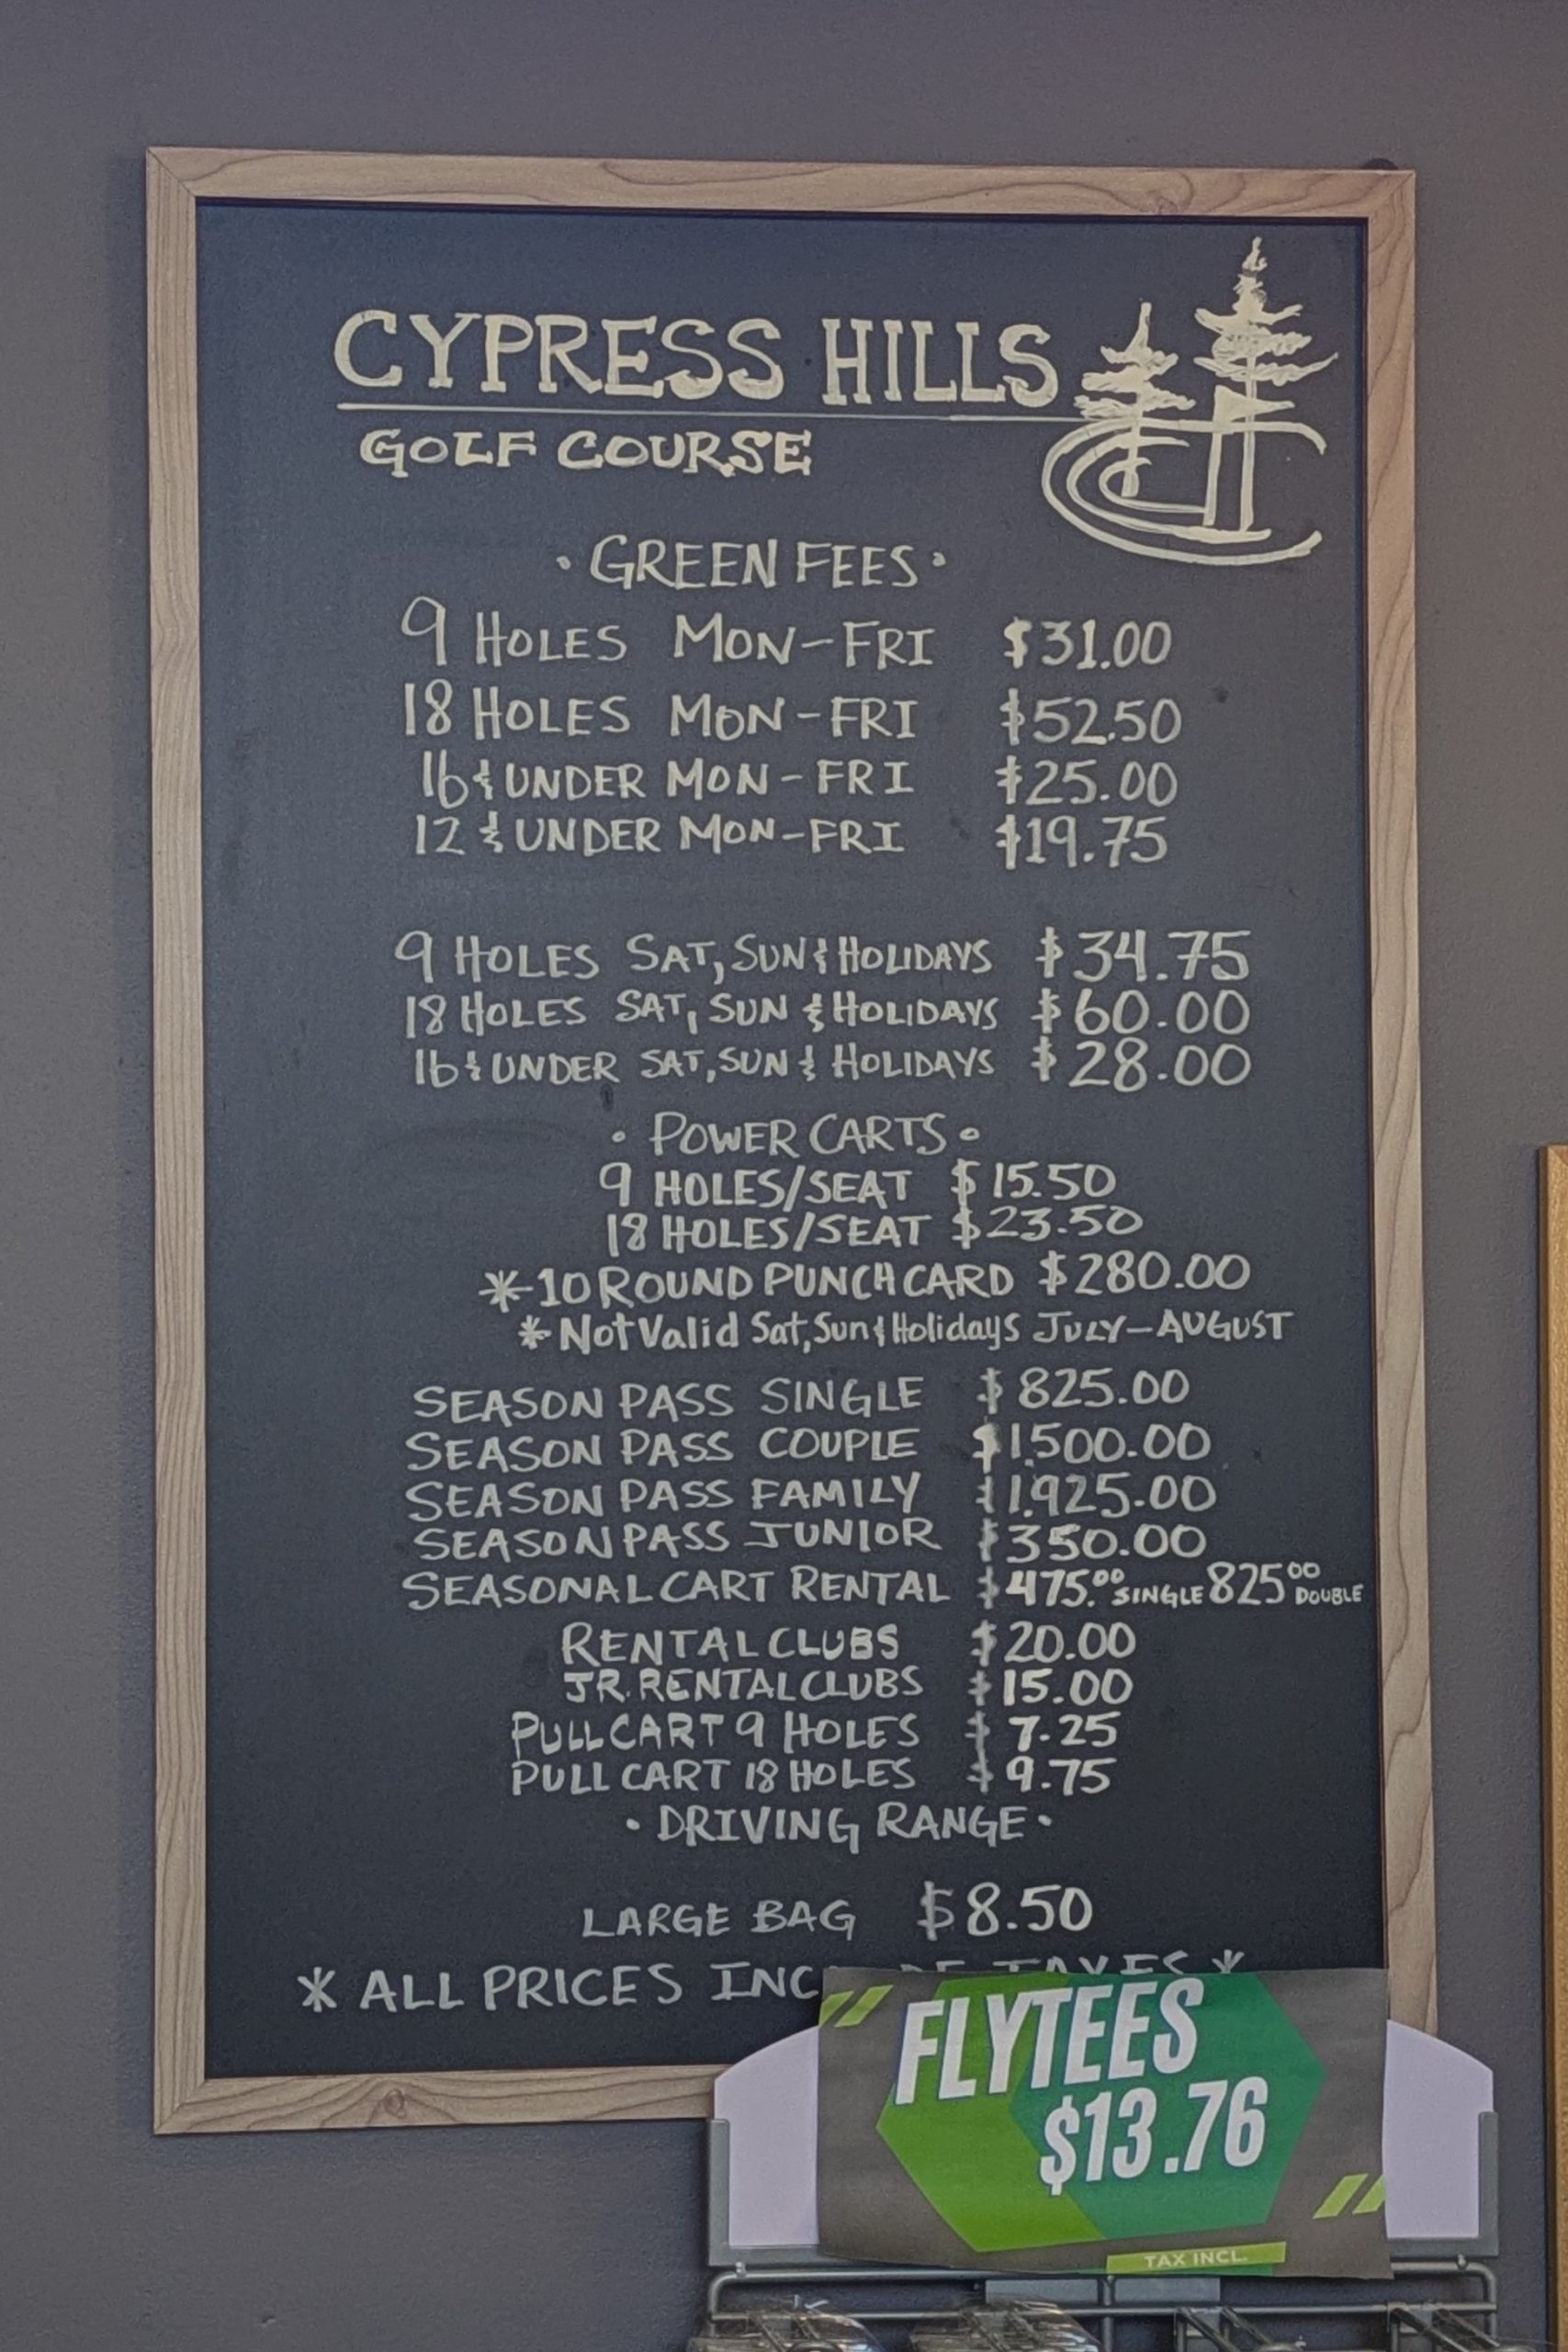 CYPRESS HILLS
GOLF COURSE
• GREEN FEES •
9 HOLES MON-FRI $31.00
18 HOLES MON-FRI $52.50
16 & UNDER MON-FRI $25.00
12 & UNDER MON-FRI $19.75
9 HOLES SAT, SUN & HOLIDAYS $34.75
18 HOLES SAT, SUN & HOLIDAYS $60.00
16 & UNDER SAT, SUN & HOLIDAYS $28.00
• POWER CARTS •
9 HOLES/SEAT $15.50
18 HOLES/SEAT $23.50
*10 ROUND PUNCH CARD $280.00
*Not Valid Sat, Sun & Holidays JULY-AUGUST
SEASON PASS SINGLE $825.00
SEASON PASS COUPLE $1,500.00
SEASON PASS FAMILY $1,925.00
SEASON PASS JUNIOR $350.00
SEASONAL CART RENTAL $475.00 SINGLE 825 00 DOUBLE
RENTAL CLUBS $20.00
JR. RENTAL CLUBS $15.00
PULL CART 9 HOLES $7.25
PULL CART 18 HOLES $9.75
• DRIVING RANGE •
LARGE BAG $8.50
* ALL PRICES INC DE TAXES *
FLYTEES
$13.76
TAX INCL.